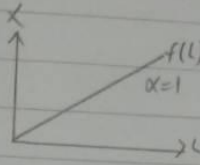 X
f(L)
α=1
L